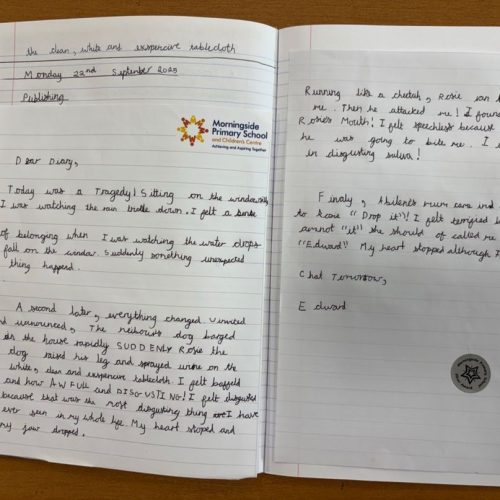 the clean, white and exspencive tablecloth
Monday 22nd September 2025
Publishing
Morningside
Primary School
and Children's Centre
Achieving and Aspiring Together
Dear Diary,
Today was a Tragedy! Sitting on the windowsill
I was watching the rain trickle down. I felt a sense
of belonging when I was watching the water drops
fall on the window. Suddenly something unexpected
thing happened.
A second later, everything changed. Uninvited
and unannounced, The neibours dog barged
the house rapidly SUDDENLY Rosie the
dog raised his leg and sprayed urine on the
white, clean and exspencive tablecloth I felt baffeld
and how AWFULL and DISGUSTING! I felt disgusted
because that was the most disgusting thing I have
ever seen in my whole life. My heart stoped and
my jaw dropped.
Running like a cheetah, Rosie ran
me. Then he attacked me! I found
Rosie's Mouth! I felt speechless because
he was going to bite me. I
in disgusting saliva!
Finaly, Abilene's mum came and
to Rosie "Drop it"! I felt terrified
"it" she should of called me
"Edward" My heart stopped although I
Chat Tomorrow,
Edward